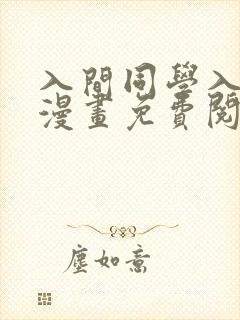 入間同學入
漫畫免費閱
塵如意